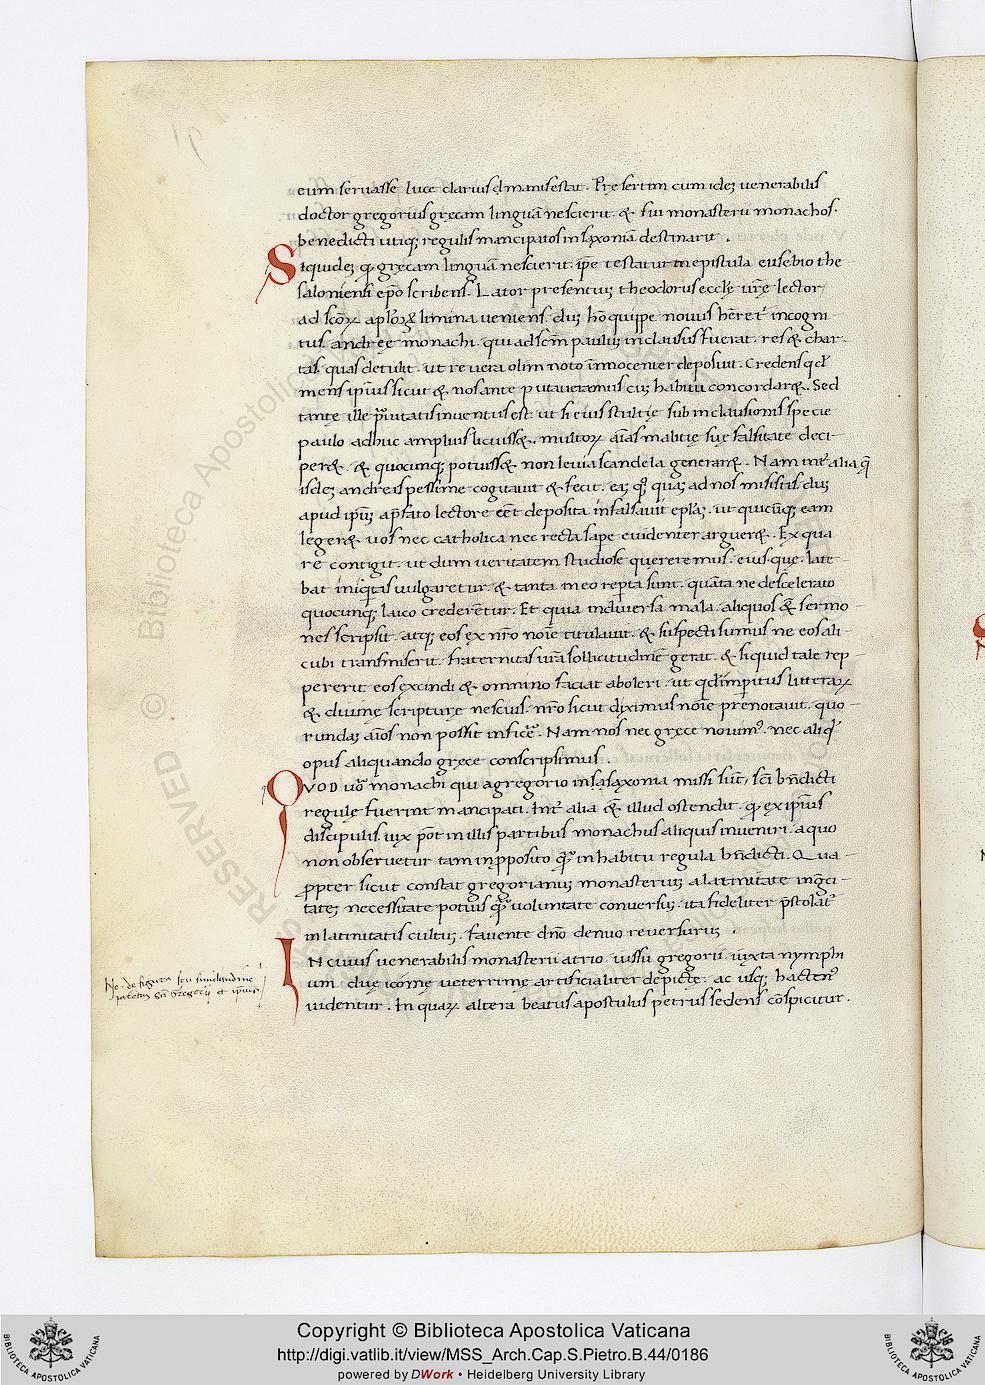 eum servasse luce clarius manifestat. Prę sertim cum idez venerabilis
doctor gregorius gręcam linguā nescierit. & sui monasterii monachos.
benedicti utiq; regulis mancipatos in saxoniā destinarit.
Siquidez q̄ gręcam linguā nescierit. ip̄e testatur in epistula eusebio the
saloniensi ep̄o scribens. Lator presentiuȝ theodorus ecclę vr̄ę lector
ad sc̄oꝝ ap̄loꝝ limina veniens. duȝ hōc quippe novus
tus. andreę monachi. qui ad sc̄m pauluȝ inclausus fuerat. res & char
tas quas detulit. ut re vera olim noto īnnocenter deposuit. Credens qd̄
mens ipsius sicut & nos ante putaveramus cuȝ habitu concordar&. Sed
tantę ille p̄vitatis inventus est. ut si eius stultię sub inclausionis specie
paulo adhuc amplius licuiss&. multoꝝ aīas malitię suę falsitate deci-
per&. & quocunq; potuiss& non levia scandela generar&. Nam int̄ alia q̄
isdeȝ andreas pessime cogitavit & fecit. eaȝ quaȝ ad nos misistis. duȝ
apud ipsuȝ lectore deposita infalsavit epl̄aȝ. ut quicūq; eam
leger& vos nec catholica nec recta sape evidenter arguer&. Ex qua
re contigit. ut dum veritatem studiose quereremus. eius quę late-
bat iniq̄tas vulgaretur. & tanta in eo rep̄ta sunt. quāta ne de scelerato
quocunq; laico crederētur. Et quia in diversa mala. aliquos & sermo-
nes scripsit. atq; eos ex nr̄o noīe titulavit. & suspecti sumus ne eos ali-
cubi transmiserit. fraternitas vr̄a sollicitudinē gerat. & siquid tale rep-
pererit eos excindi & omnino faciat aboleri. ut qd imperitus litteraꝝ
& divinę scripturę nescius. nr̄o sicut diximus noīe prenotavit. quo-
rundaȝ aīos non possit inficere. Nam nos nec grece novim⁹. nec aliqd̄
opus aliquando grece conscripsimus.
QVOD v̄o monachi qui a gregorio in saxonia missi sūt, sc̄i bn̄dicti
regulę fuerint mancipati. Int̄ alia & illud ostendit. q̄ ex ipsius
discipulis. vix pōt in illis partibus monachus aliquis inveniri. a quo
non observetur tam in p̄posito q̄ in habitu regula bn̄dicti. Qua-
p̄pter sicut constat gregorianuȝ monasteriuȝ a latinitate in grēci-
tateȝ necessitate potius q̄ voluntate conversuȝ. ita fideliter p̄stolat̄
in latinitatis cultuȝ. favente dn̄o denuo reversuruȝ.
IN cuius venerabilis monasterii atrio iussu gregorii iuxta nymphi
um. duę iconę veterrimę artificialiter depictę. ac usq; hacten⁹
videntur. In quaꝝ altera beatus apostolus petrus sedens cōspicitur.
No. de figura seu similitudine
patrum sci gregorii et ipsius
Copyright © Biblioteca Apostolica Vaticana
http://digi.vatlib.it/view/MSS_Arch.Cap.S.Pietro.B.44/0186
powered by DWork • Heidelberg University Library